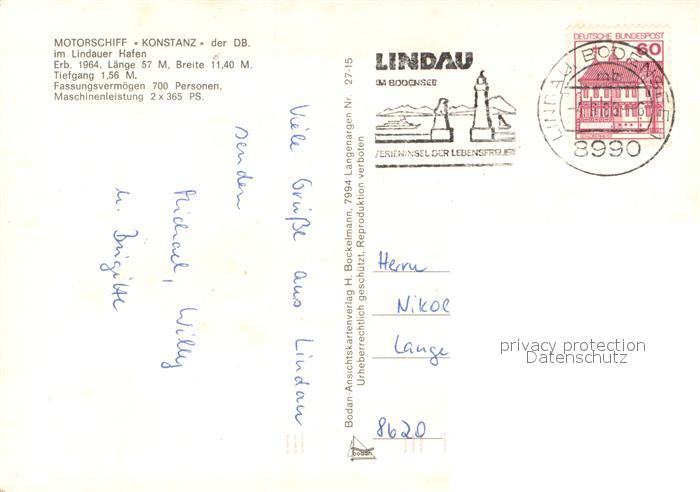 MOTORSCHIFF « KONSTANZ » der DB.
im Lindauer Hafen
Erb. 1964, Länge 57 M, Breite 11,40 M.
Tiefgang 1,56 M.
Fassungsvermögen 700 Personen,
Maschinenleistung 2 x 365 PS.
Viele Grüße aus Lindau
senden
Michael, Willy
u. Brigitte
Bodan-Ansichtskartenverlag H. Bockelmann, 7994 Langenargen Nr. 27-15
Urheberrechtlich geschützt, Reproduktion verboten
bodan
LINDAU
IM BODENSEE
FERIENINSEL DER LEBENSFREUDE
DEUTSCHE BUNDESPOST
60
LINDAU, BODENSEE
8990
Herrn
Nikol
Lange
8620
privacy protection
Datenschutz